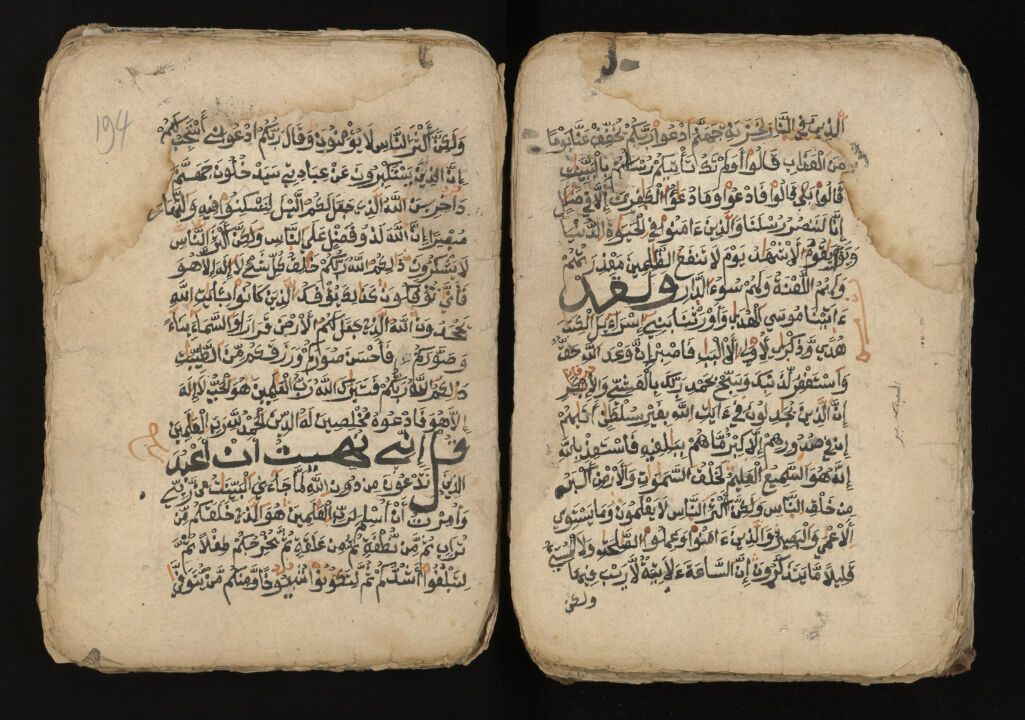 الذين في النار لخزنة جهنم ادعوا ربكم يخفف عنا يوما
من العذاب قالوا أولم تك تأتيكم رسلكم بالبينت
قالوا بلى قالوا فادعوا وما دعؤا الكفرين إلا في ضلل
إنا لننصر رسلنا والذين ءامنوا في الحيوة الدنيا
ويوم يقوم الاشهد يوم لا تنفع الظلمين معذرتهم
ولهم اللعنة ولهم سوء الدار ولقد
ءاتينا موسى الهدى وأورثنا بني إسرءيل الكتب
هدى وذكرى لأولي الألبب فاصبر إن وعد الله حق
واستغفر لذنبك وسبح بحمد ربك بالعشي والإبكر
إن الذين يجدلون في ءايت الله بغير سلطن أتيهم
إن في صدورهم إلا كبر ما هم ببلغيه فاستعذ بالله
إنه هو السميع العليم لخلق السموت والأرض أكبر
من خلق الناس ولكن أكثر الناس لا يعلمون وما يستوي
الأعمى والبصير والذين ءامنوا وعملوا الصلحت ولا المسيء
قليلا ما يتذكرون إن الساعة ءلاتية لا ريب فيها
ولكن
194
ولكن أكثر الناس لا يؤمنون وقال ربكم ادعوني أستجب لكم
إن الذين يستكبرون عن عبادتي سيدخلون جهنم
داخرين الله الذي جعل لكم الليل لتسكنوا فيه والنهار
مبصرا إن الله لذو فضل على الناس ولكن أكثر الناس
لا يشكرون ذلكم الله ربكم خلق كل شيء لا إله إلا هو
فأنى تؤفكون كذلك يؤفك الذين كانوا بءايت الله
يجحدون الله الذي جعل لكم الأرض قرارا والسماء بناء
وصوركم فأحسن صوركم ورزقكم من الطيبت
ذلكم الله ربكم فتبرك الله رب العلمين هو الحي لا إله
إلا هو فادعوه مخلصين له الدين الحمد لله رب العلمين
قل إني نهيت أن أعبد
الذين تدعون من دون الله لما جاءني البينت من ربي
وأمرت أن أسلم لرب العلمين هو الذي خلقكم من
تراب ثم من نطفة ثم من علقة ثم يخرجكم طفلا ثم
لتبلغوا أشدكم ثم لتكونوا شيوخا ومنكم من يتوفى